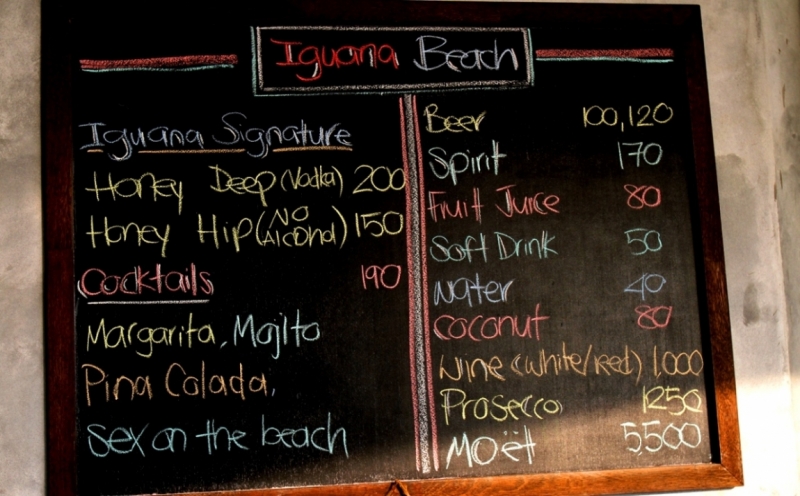 Iguana Beach
Iguana Signature
Honey Deep (Vodka) 200
Honey Hip (No Alcohol) 150
Cocktails 190
Margarita, Mojito
Pina Colada,
Sex on the beach
Beer 100,120
Spirit 170
Fruit Juice 80
Soft Drink 50
Water 40
Coconut 80
Wine (white/red) 1,000
Prosecco 1250
Moët 5,500